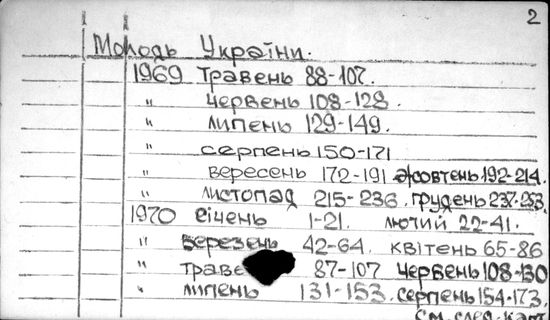 2
Молодь України.
1969 травень 88-107.
" червень 108-128.
" липень 129-149.
" серпень 150-171
" вересень 172-191 жовтень 192-214.
" листопад 215-236. грудень 237-253.
1970 січень 1-21. лютий 22-41.
" березень 42-64. квітень 65-86
" траве 87-107 червень 108-130
" липень 131-153. серпень 154-173.
См. след. карт.